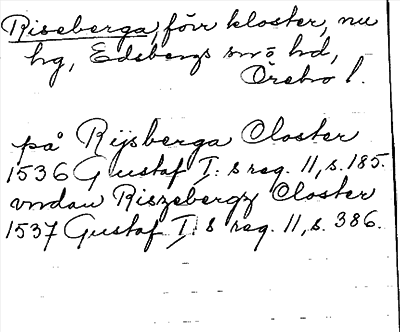 Riseberga, förr kloster, nu
hg, Edsbergs sn o hd,
Örebro l.
på Rijsberga Closter
1536 Gustaf I: s reg. 11, s. 185.
vndan Riszebergz Closter
1537 Gustaf I: s reg. 11, s. 386.